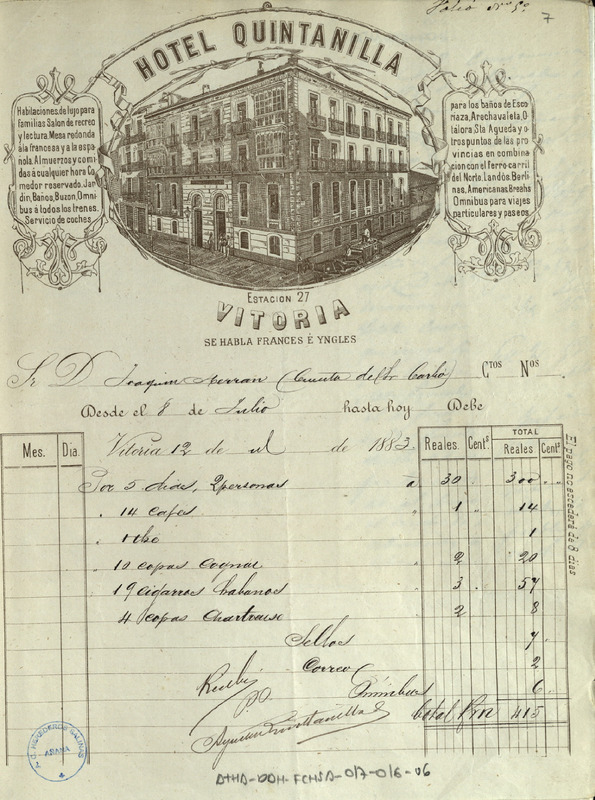 Folio Nº 5º
7
HOTEL QUINTANILLA
Habitaciones de lujo para
familias Salon de recreo
y lectura. Mesa redonda
ala francesa y a la espa
ñola. Almuerzos y comi
das á cualquier hora Co
medor reservado. Jar
din, Baños, Buzon, Omni
bus á todos los trenes.
Servicio de coches
para los baños de Esco
riaza, Arechavaleta, O
tálora, Sta Agueda y o
tros puntos de las pro
vincias en combina
cion con el Ferro-carril
del Norte. Landós, Berli
nas, Americanas, Breahs
Omnibus para viajes
particulares y paseos
ESTACION 27
VITORIA
SE HABLA FRANCES É YNGLES
Sr D Joaquin Herran (Cuenta del Sr Carbó) Ctos Nos
Desde el 8 de Julio hasta hoy Debe
Mes. Dia. Vitoria 12 de ul de 1883. Reales. Cents. TOTAL Reales. Cents.
Por 5 dias, 2 personas á 30 300
14 cafes 1 14
1 thé 1
10 copas Cognac 2 20
19 cigarros habanos 3 57
4 copas Chartreuse 2 8
Sellos 7
Correo 2
Omnibus 6
total Rvn 415
Recibi
P.O.
Quintanilla
El pago no escederá de 8 dias
HEREDEROS SALINAS
ARANA
ATHA-DDH-FCHSA-017-016-06